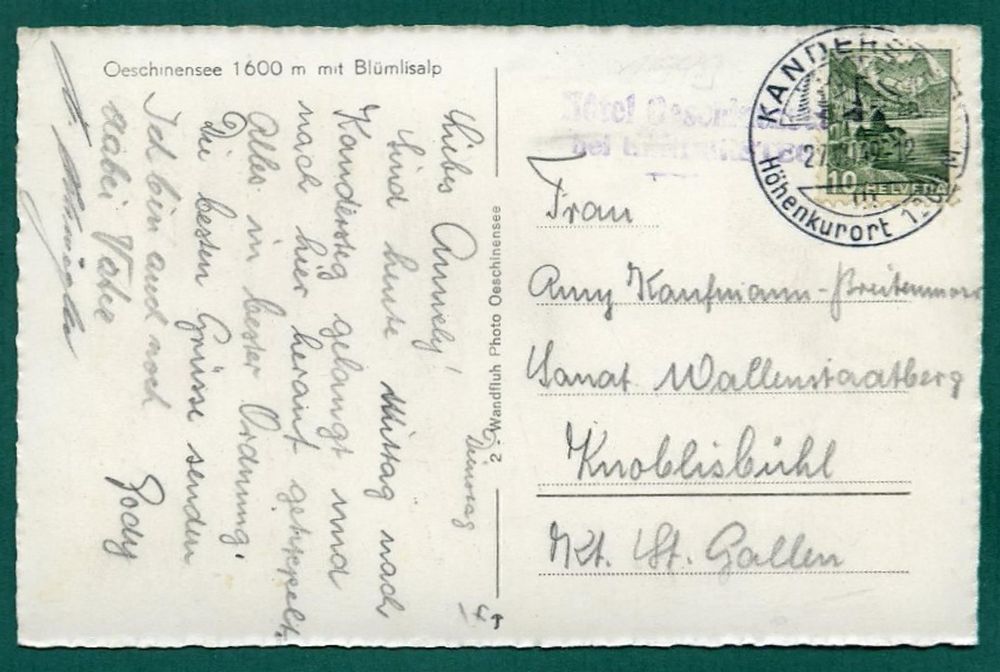 Oeschinensee 1600 m mit Blümlisalp
Dienstag
Liebs Annely!
Sind heute Mittag nach
Kandersteg gelangt und
nach hier herauf getippelt.
Alles in bester Ordnung.
Die besten Grüsse senden
Ich bin auch noch Gody
dabei Vater
2. Wandfluh Photo Oeschinensee
Hôtel Oeschinensee
bei
KANDERSTEG
Höhenkurort
HELVETIA
10
Frau
Amy Kaufmann-Breitenmoser
Sanat. Wallenstaatberg
Knoblisbühl
Kt. St. Gallen